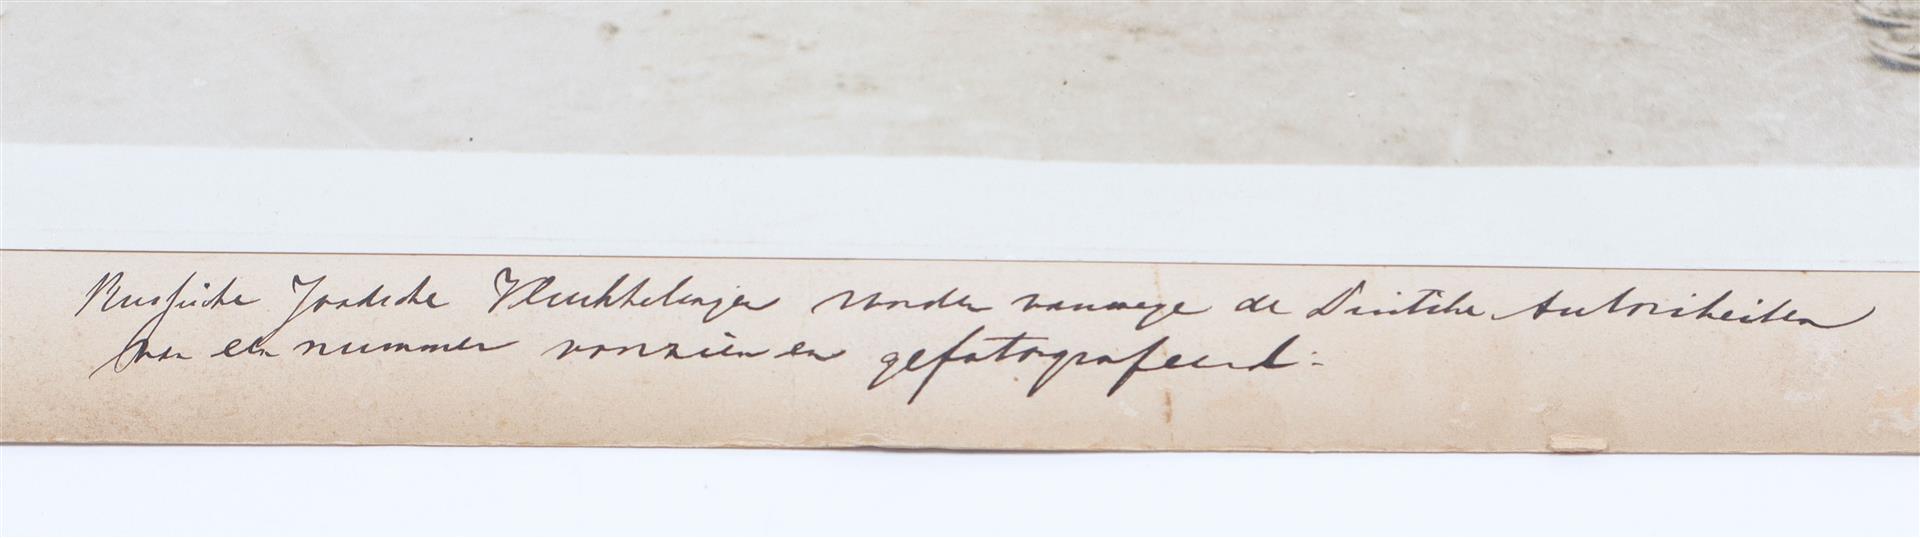 Russische Joodsche Vluchtelingen worden vanwege de Duitsche Autoriteiten
van een nummer voorzien en gefotografeerd.